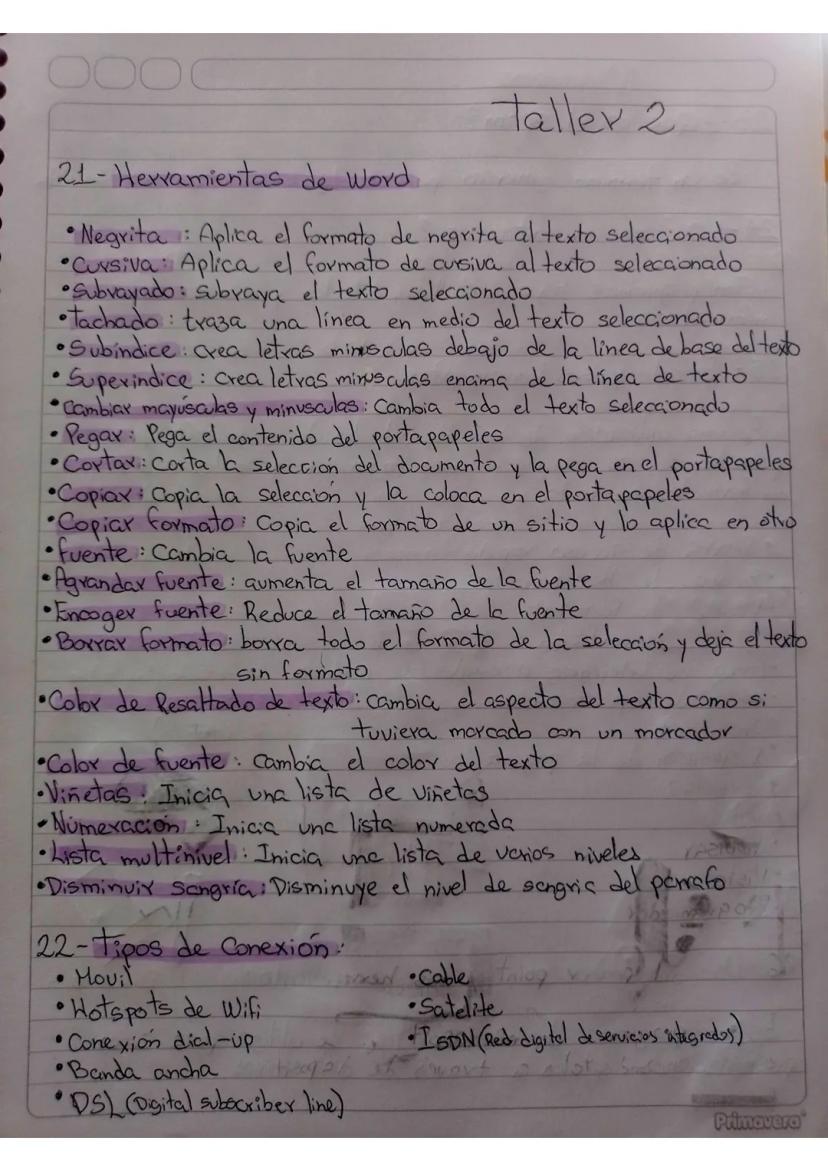 Taller 2
21- Herramientas de Word
• Negrita : Aplica el formato de negrita al texto seleccionado
• Cursiva : Aplica el formato de cursiva al texto seleccionado
• Subrayado : subraya el texto seleccionado
• Tachado : traza una línea en medio del texto seleccionado
• Subíndice : crea letras minusculas debajo de la línea de base del texto
• Superindice : crea letras minusculas encima de la línea de texto
• Cambiar mayúsculas y minusculas : Cambia todo el texto seleccionado
• Pegar : Pega el contenido del portapapeles
• Cortar : Corta la selección del documento y la pega en el portapapeles
• Copiar : Copia la selección y la coloca en el portapapeles
• Copiar formato : Copia el formato de un sitio y lo aplica en otro
• Fuente : Cambia la fuente
• Agrandar fuente : aumenta el tamaño de la fuente
• Encoger fuente : Reduce el tamaño de la fuente
• Borrar formato : borra todo el formato de la selección y deja el texto
sin formato
• Color de Resaltado de texto : cambia el aspecto del texto como si
tuviera marcado con un marcador
• Color de fuente : Cambia el color del texto
• Viñetas : Inicia una lista de viñetas
• Númeración : Inicia una lista numerada
• Lista multinivel : Inicia una lista de varios niveles
• Disminuir Sangría : Disminuye el nivel de sangria del párrafo
22- Tipos de Conexión :
• Movil
• Hotspots de Wifi
• Conexión dial-up
• Banda ancha
• DSL (Digital subscriber line)
• Cable
• Satelite
• ISDN (Red digital de servicios integrados)
Primavera